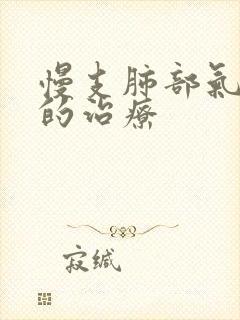 慢支肺部氣
的治療
寂缄